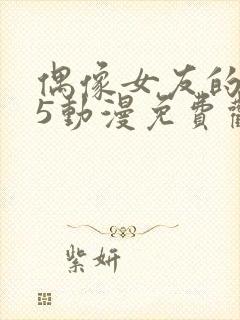 偶像女友的
5動漫免費
紫妍